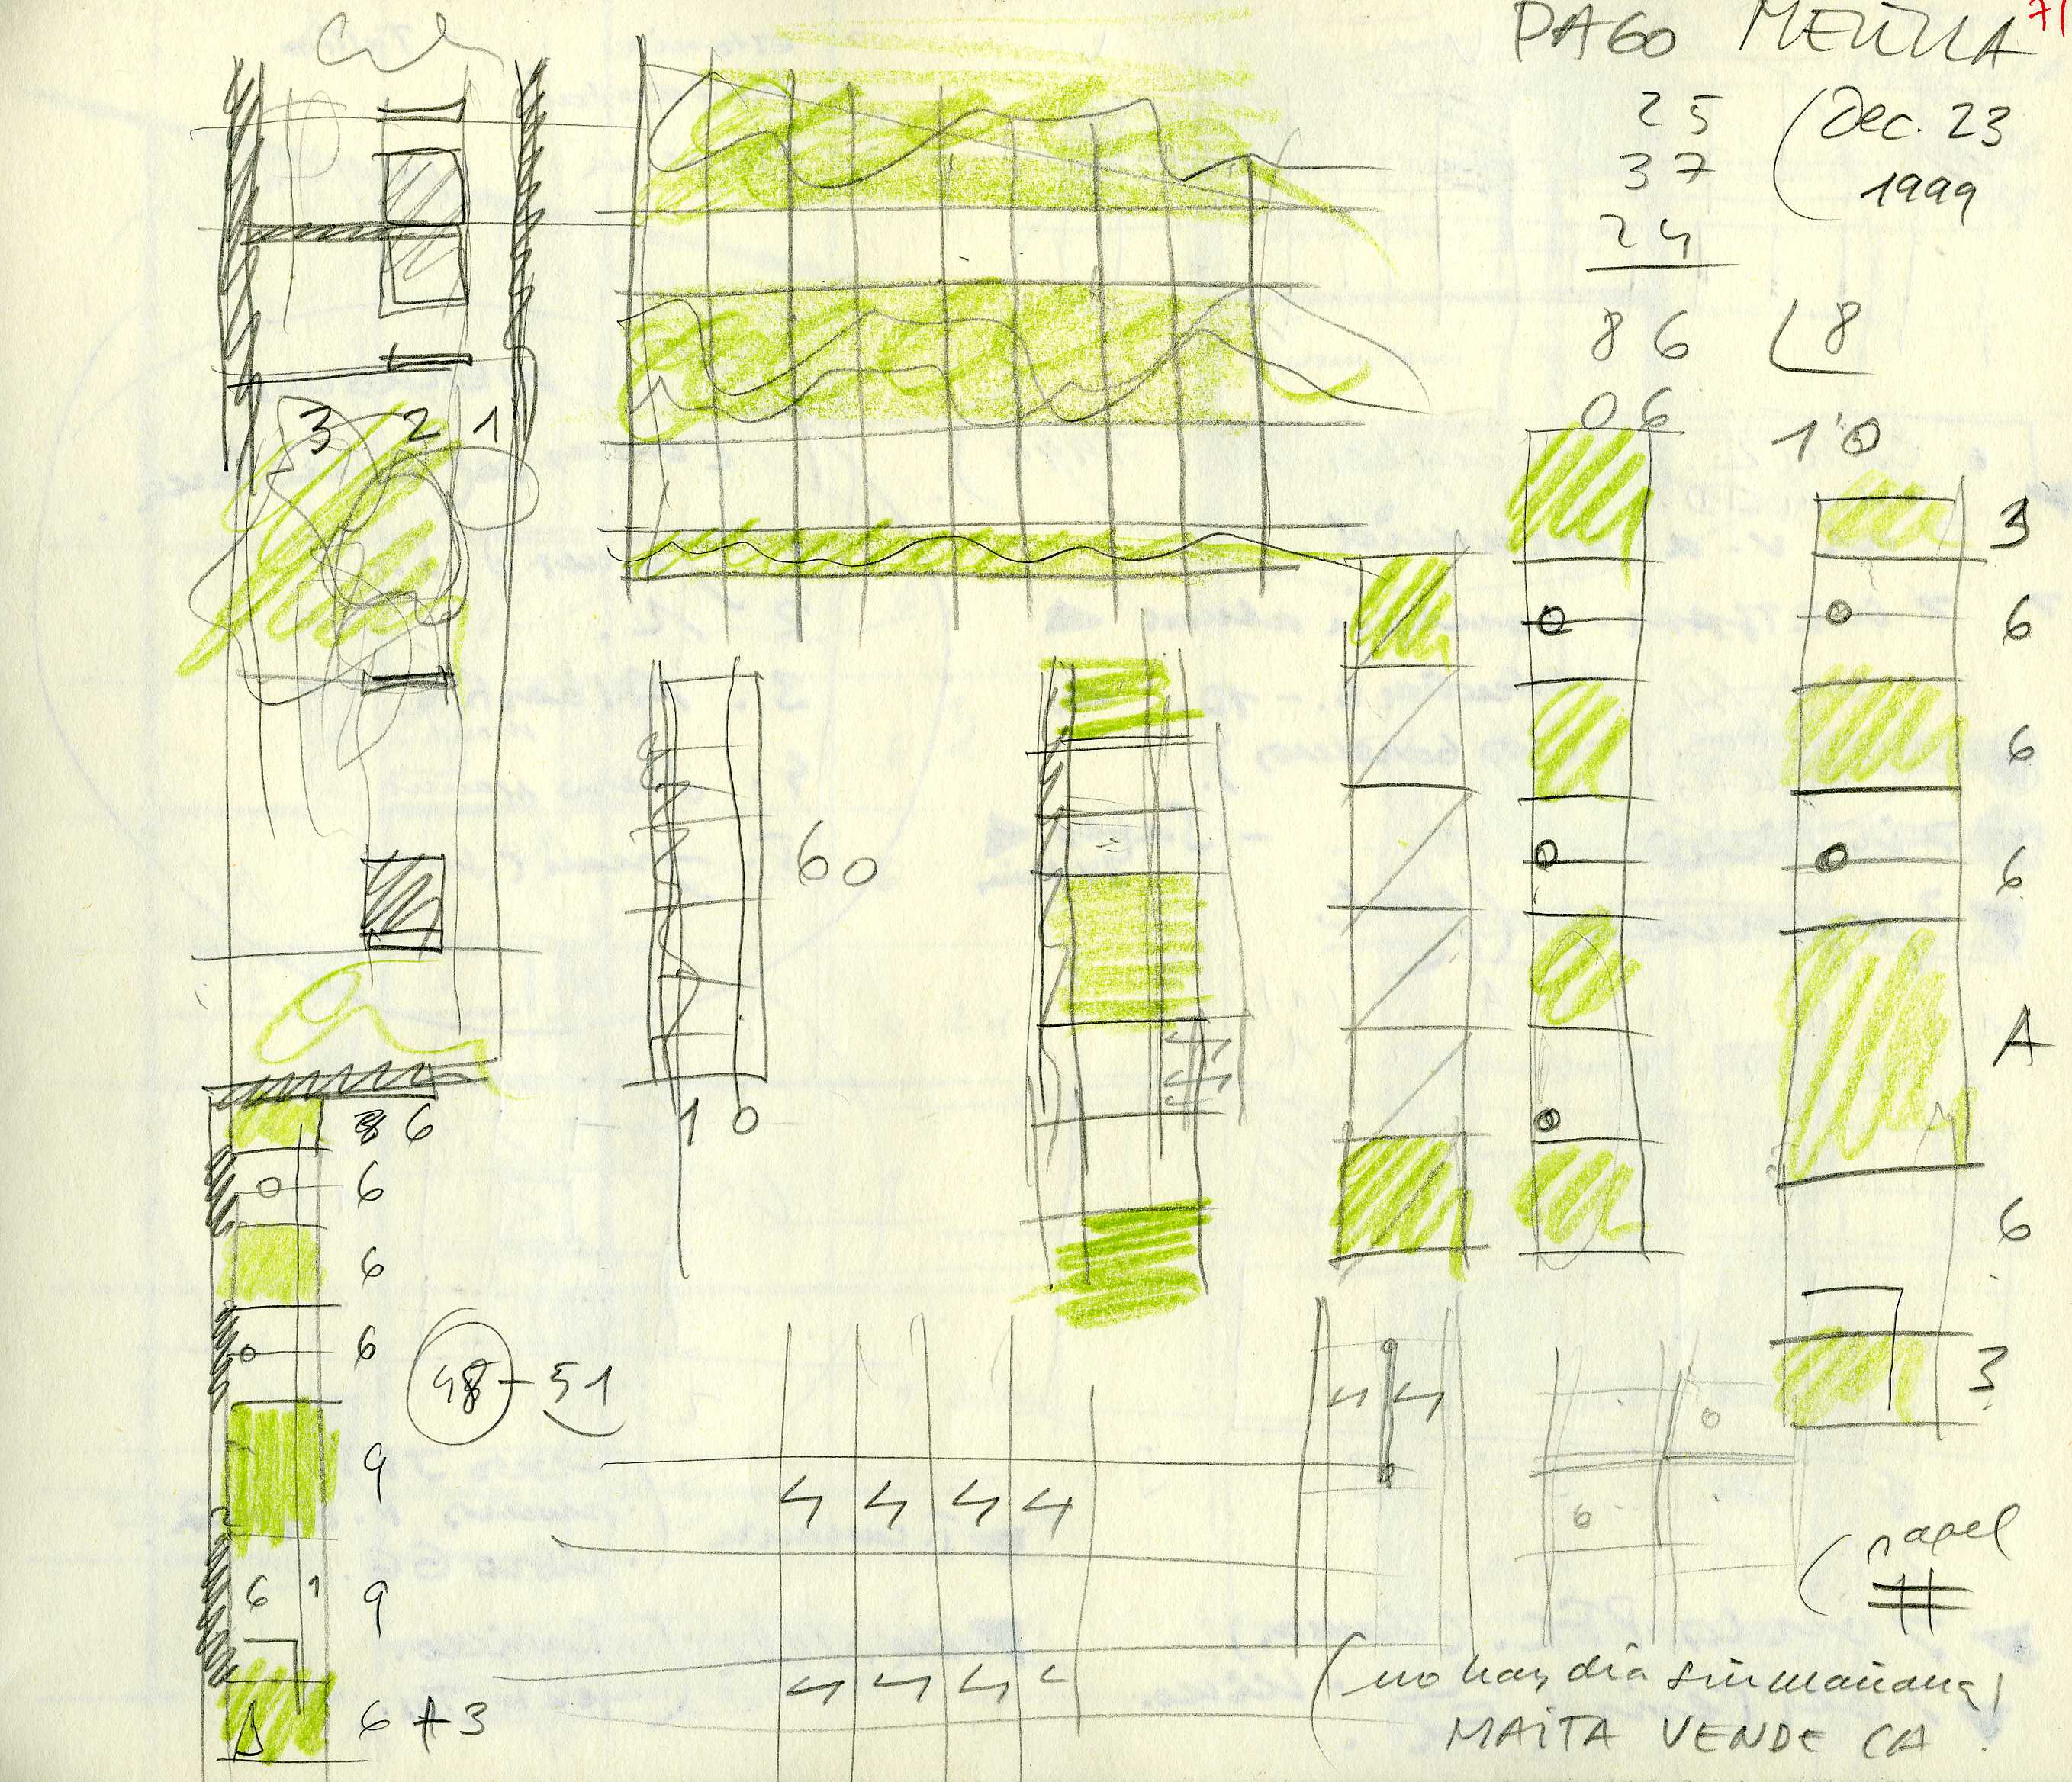 71
PAGO MELILLA
25
37
24
86 8
06
10
(Dec. 23
1999
3 2 1
3
6
6
6
A
6
3
60
10
6
6
6
6
9
6 1 9
6 + 3
48 - 51
4 4
4 4 4 4
4 4 4 4
(papel
(no hay dia sin mañana)
MAITA VENDE CA